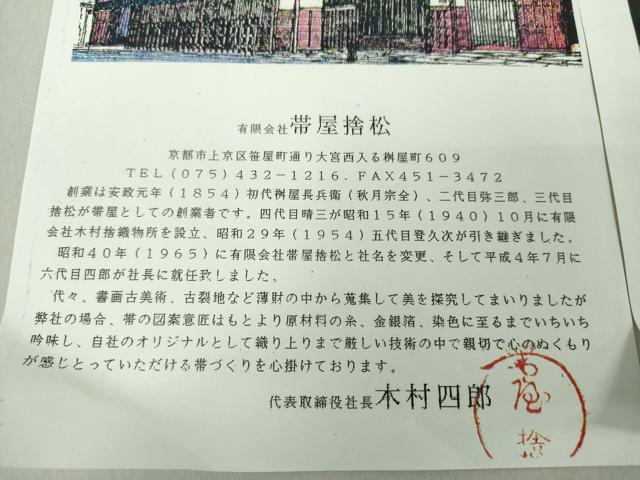 有限会社 帯屋捨松
京都市上京区笹屋町通り大宮西入る桝屋町609
TEL(075)432-1216.FAX451-3472
創業は安政元年(1854)初代桝屋長兵衛(秋月宗全)、二代目弥三郎、三代目
捨松が帯屋としての創業者です。四代目晴三が昭和15年(1940)10月に有限
会社木村捨織物所を設立、昭和29年(1954)五代目登久次が引き継ぎました。
昭和40年(1965)に有限会社帯屋捨松と社名を変更、そして平成4年7月に
六代目四郎が社長に就任致しました。
代々、書画古美術、古裂地など薄財の中から蒐集して美を探究してまいりましたが
弊社の場合、帯の図案意匠はもとより原材料の糸、金銀箔、染色に至るまでいちいち
吟味し、自社のオリジナルとして織り上りまで厳しい技術の中で親切で心のぬくもり
が感じとっていただける帯づくりを心掛けております。
代表取締役社長 木村四郎
屋
捨